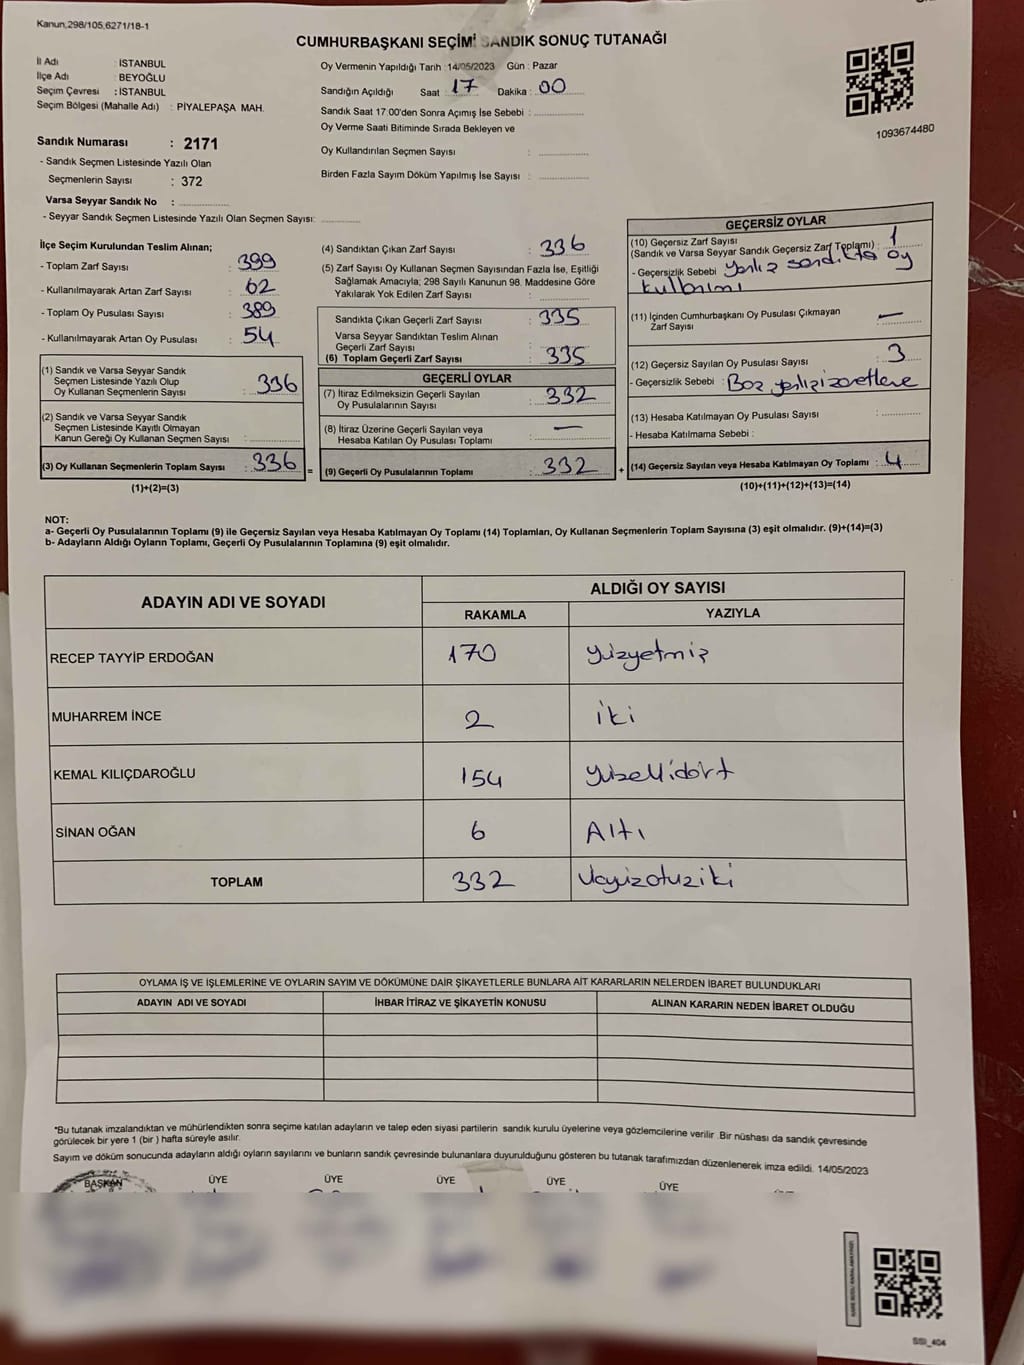 Kanun,298/105,6271/18-1
CUMHURBAŞKANI SEÇİMİ SANDIK SONUÇ TUTANAĞI
İl Adı : İSTANBUL
İlçe Adı : BEYOĞLU
Seçim Çevresi : İSTANBUL
Seçim Bölgesi (Mahalle Adı) : PİYALEPAŞA MAH.
Oy Vermenin Yapıldığı Tarih : 14/05/2023 Gün : Pazar
Sandığın Açıldığı Saat : 17 Dakika : 00
Sandık Saat 17:00'den Sonra Açımış İse Sebebi :
Oy Verme Saati Bitiminde Sırada Bekleyen ve
Oy Kullandırılan Seçmen Sayısı :
Birden Fazla Sayım Döküm Yapılmış İse Sayısı :
1093674480
Sandık Numarası : 2171
- Sandık Seçmen Listesinde Yazılı Olan
Seçmenlerin Sayısı : 372
Varsa Seyyar Sandık No :
- Seyyar Sandık Seçmen Listesinde Yazılı Olan Seçmen Sayısı:
İlçe Seçim Kurulundan Teslim Alınan;
- Toplam Zarf Sayısı : 399
- Kullanılmayarak Artan Zarf Sayısı : 62
- Toplam Oy Pusulası Sayısı : 389
- Kullanılmayarak Artan Oy Pusulası : 54
(1) Sandık ve Varsa Seyyar Sandık
Seçmen Listesinde Yazılı Olup
Oy Kullanan Seçmenlerin Sayısı : 336
(2) Sandık ve Varsa Seyyar Sandık
Seçmen Listesinde Kayıtlı Olmayan
Kanun Gereği Oy Kullanan Seçmen Sayısı :
(3) Oy Kullanan Seçmenlerin Toplam Sayısı : 336
(1)+(2)=(3)
(4) Sandıktan Çıkan Zarf Sayısı : 336
(5) Zarf Sayısı Oy Kullanan Seçmen Sayısından Fazla İse, Eşitliği
Sağlamak Amacıyla; 298 Sayılı Kanunun 98. Maddesine Göre
Yakılarak Yok Edilen Zarf Sayısı :
Sandıkta Çıkan Geçerli Zarf Sayısı : 335
Varsa Seyyar Sandıktan Teslim Alınan
Geçerli Zarf Sayısı :
(6) Toplam Geçerli Zarf Sayısı : 335
GEÇERLİ OYLAR
(7) İtiraz Edilmeksizin Geçerli Sayılan
Oy Pusulalarının Sayısı : 332
(8) İtiraz Üzerine Geçerli Sayılan veya
Hesaba Katılan Oy Pusulası Toplamı : —
= (9) Geçerli Oy Pusulalarının Toplamı : 332 +
GEÇERSİZ OYLAR
(10) Geçersiz Zarf Sayısı
(Sandık ve Varsa Seyyar Sandık Geçersiz Zarf Toplamı) : 1
- Geçersizlik Sebebi : sandıkta oy
(11) İçinden Cumhurbaşkanı Oy Pusulası Çıkmayan
Zarf Sayısı : —
(12) Geçersiz Sayılan Oy Pusulası Sayısı : 3
- Geçersizlik Sebebi :
(13) Hesaba Katılmayan Oy Pusulası Sayısı :
- Hesaba Katılmama Sebebi :
(14) Geçersiz Sayılan veya Hesaba Katılmayan Oy Toplamı : 4
(10)+(11)+(12)+(13)=(14)
NOT:
a- Geçerli Oy Pusulalarının Toplamı (9) ile Geçersiz Sayılan veya Hesaba Katılmayan Oy Toplamı (14) Toplamları, Oy Kullanan Seçmenlerin Toplam Sayısına (3) eşit olmalıdır. (9)+(14)=(3)
b- Adayların Aldığı Oyların Toplamı, Geçerli Oy Pusulalarının Toplamına (9) eşit olmalıdır.
ADAYIN ADI VE SOYADI ALDIĞI OY SAYISI
RAKAMLA YAZIYLA
RECEP TAYYİP ERDOĞAN 170 yüzyetmiş
MUHARREM İNCE 2 iki
KEMAL KILIÇDAROĞLU 154 yüzellidört
SİNAN OĞAN 6 Altı
TOPLAM 332 üçyüzotuziki
OYLAMA İŞ VE İŞLEMLERİNE VE OYLARIN SAYIM VE DÖKÜMÜNE DAİR ŞİKAYETLERLE BUNLARA AİT KARARLARIN NELERDEN İBARET BULUNDUKLARI
ADAYIN ADI VE SOYADI İHBAR İTİRAZ VE ŞİKAYETİN KONUSU ALINAN KARARIN NEDEN İBARET OLDUĞU
*Bu tutanak imzalandıktan ve mühürlendikten sonra seçime katılan adayların ve talep eden siyasi partilerin sandık kurulu üyelerine veya gözlemcilerine verilir .Bir nüshası da sandık çevresinde
görülecek bir yere 1 (bir ) hafta süreyle asılır.
Sayım ve döküm sonucunda adayların aldığı oyların sayılarını ve bunların sandık çevresinde bulunanlara duyurulduğunu gösteren bu tutanak tarafımızdan düzenlenerek imza edildi. 14/05/2023
BAŞKAN ÜYE ÜYE ÜYE ÜYE ÜYE
SSI_404